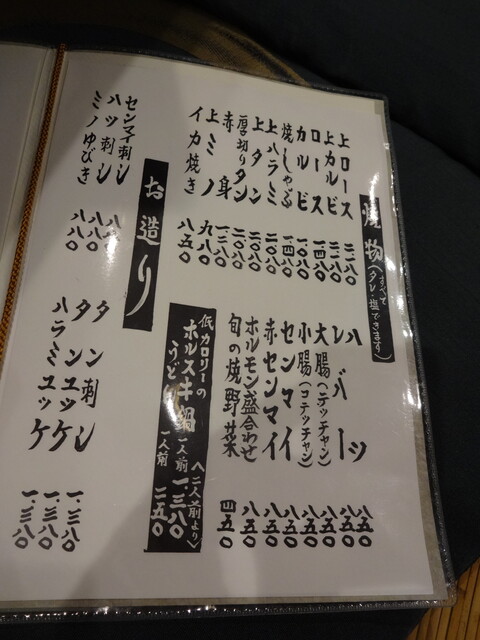 焼物(すべてタレ・塩できます)
上ロース
上カルビ
ロース 一.四八〇
カルビ 一.〇八〇
焼しゃぶ 一.四八〇
上ハラミ
上タン
厚切りタン
赤身
上ミノ 九八〇
イカ焼き 八五〇
ハツ 八五〇
レバー 八五〇
大腸(テッチャン) 八五〇
小腸(コテッチャン) 八五〇
センマイ 八五〇
赤センマイ 八五〇
ホルモン盛合わせ 八五〇
旬の焼野菜 四五〇
低カロリーの
ホルスキ鍋 一人前 一.三八〇 (二人前より)
うどん 一人前 二五〇
お造り
センマイ刺し
ハツ刺し 八八〇
ミノゆびき 八八〇
タン刺し 一.三八〇
タンユッケ 一.三八〇
ハラミユッケ 一.三八〇